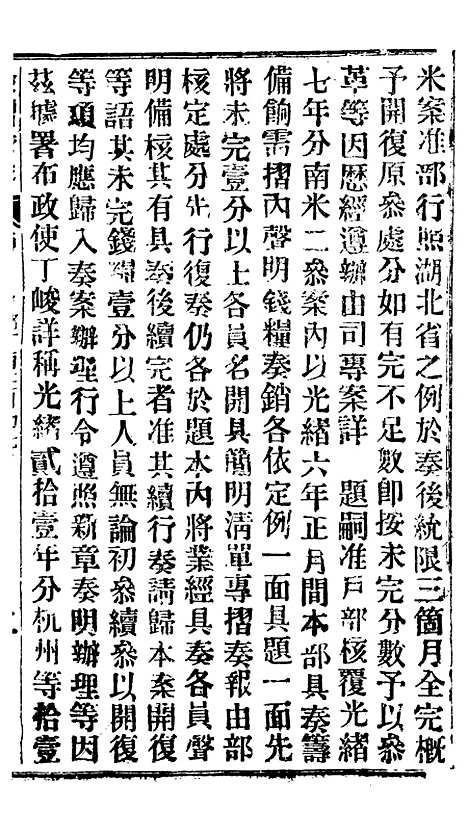 米案准部行照湖北省之例於奏後統限三箇月全完概
予開復原叅處分如有完不足數卽按未完分數予以叅
革等因歷經遵辦由司專案詳　題嗣准戶部核覆光緒
七年分南米二叅案內以光緒六年正月間本部具奏籌
備餉需摺內聲明錢糧奏銷各依定例一面具題一面先
將未完壹分以上各員名開具簡明清單專摺奏報由部
核定處分先行復奏仍各於題本內將業經具奏各員聲
明備核其有具奏後續完者准其續行奏請歸本案開復
等語其未完錢糧壹分以上人員無論初叅續叅以開復
等項均應歸入奏案辦理行令遵照新章奏明辦理等因
茲據署布政使丁峻詳稱光緒貳拾壹年分杭州等拾壹